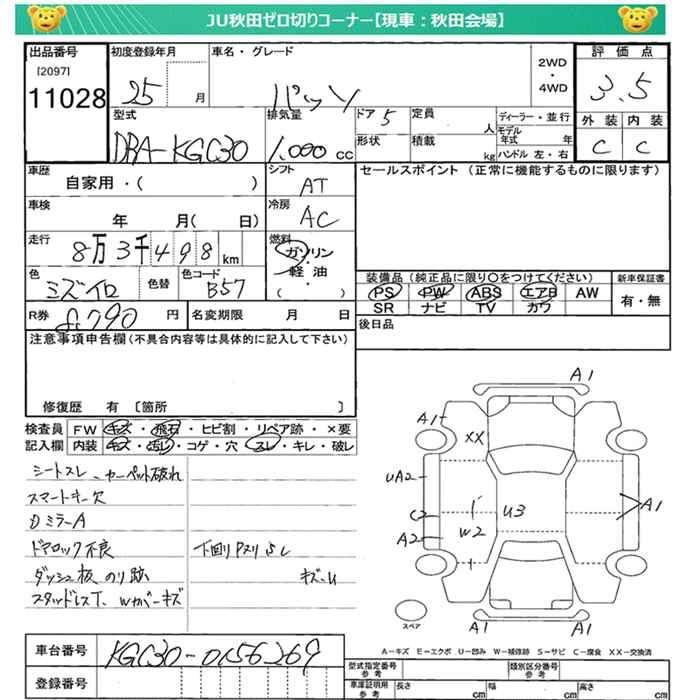 JU秋田ゼロ切りコーナー【現車：秋田会場】
出品番号 初度登録年月 車名・グレード 2WD ・ 4WD 評価点
[2097]
11028 25 月 パッソ 3.5
型式 排気量 ドア 5 定員 人 ディーラー・並行 外装 内装
DBA-KGC30 1,000 cc 形状 積載 kg モデル年式 年 ハンドル 左・右 C C
車歴 自家用・( ) シフト AT セールスポイント (正常に機能するものに限ります)
車検 年 月( 日) 冷房 AC
走行 8万3千498km 燃料 ガソリン・軽油・( )
色 ミズイロ 色替 色コード B57
装備品 (純正品に限り○をつけてください) 新車保証書
PS PW ABS エアB AW 有・無
SR ナビ TV カワ
R券 8,790 円 名変期限 月 日 後日品
注意事項申告欄(不具合内容等は具体的に記入して下さい)
修復歴 有 〔箇所 〕
検査員 FW キズ・飛石・ヒビ割・リペア跡・×要
記入欄 内装 キズ・汚レ・コゲ・穴・スレ・キレ・破レ
シートスレ、カーペット破れ
スマートキー欠
ミラーA
ドアロック不良 下回りPスリ
ダッシュ板、のり跡 キズ
スタッドレスT、Wカバーキズ
A1
A1
XX
UA2
U3
A1
C2
W2
A2
スペア
A1 A1
A－キズ E－エクボ U－凹み W－補修跡 S－サビ C－腐食 XX－交換済
車台番号 KGC30-0156269
登録番号
型式指定番号 参考 類別区分番号 参考
車庫証明用 参考 長さ cm 幅 cm 高さ cm